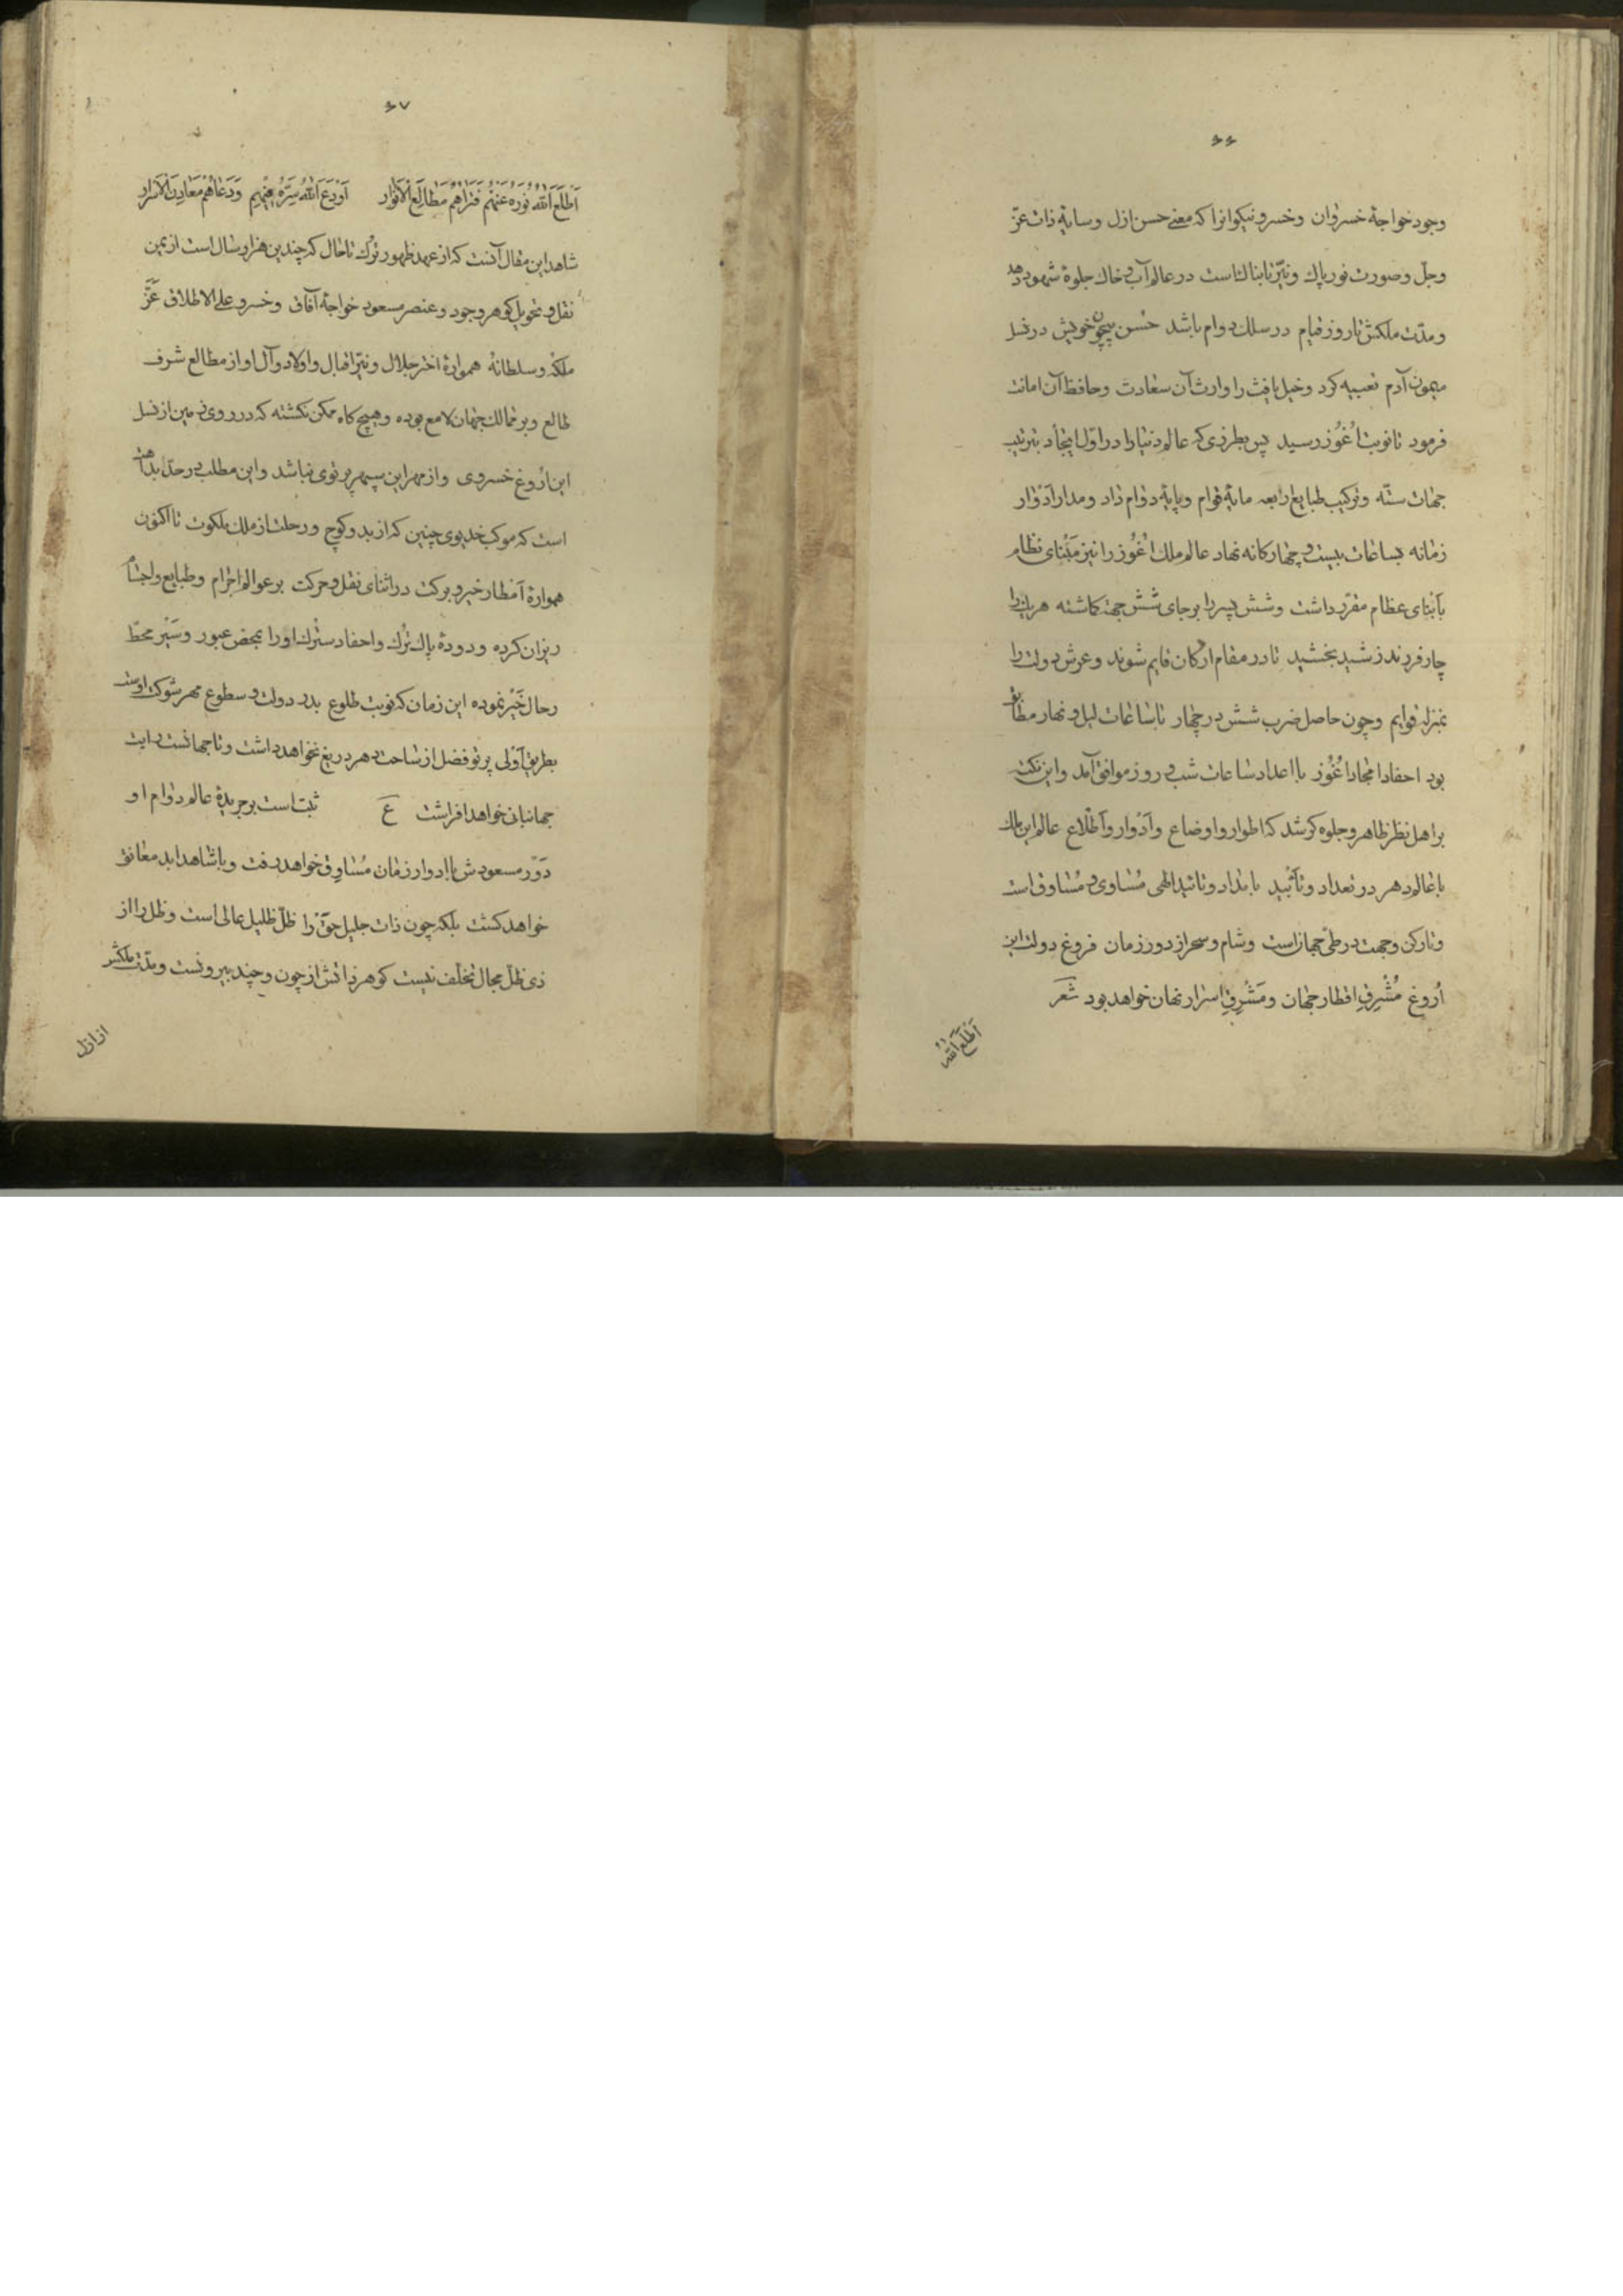 ۶۶
وجود خواجهٔ خسروان وخسرو نیکوانرا که معنی حسن ازل وسایهٔ ذات عزّ
وجلّ وصورت نور پاك ونیّر تابناك است در عالم آب وخاك جلوهٔ شهود دهد
ومدّت ملکش تا روز قیام در سلك دوام باشد حسن بیچون خویش در نسل
میمون آدم تعبیه کرد وخیل یافث را وارث آن سعادت وحافظ آن امانت
فرمود تا نوبت اُغُوز رسید پس بطرزی که عالم دنیا را در اوّل ایجاد بترتیب
جهات ستّه وترکیب طبایع اربعه مایهٔ قوام وپایهٔ دوام داد ومدار اَدْوار
زمانه بساعات بیست و چهارگانه نهاد عالم ملك اُغُوز را نیز مَبْنای نظام
بأبنای عظام مقرّر داشت وشش پسر را بر جای شش جهت کماشته هر یك را
چار فرزند رشید بخشید تا در مقام ارکان قایم شوند وعرش دولت را
بمنزلهٔ قوایم وچون حاصل ضرب شش در چهار با ساعات لیل و نهار مطابق
بود احفاد امجاد اُغُوز با اعداد ساعات شب و روز موافق آمد واین نکته
بر اهل نظر ظاهر وجلوه کر شد که اطوار واوضاع وأدْوار وأطْلاع عالم این ملك
با عالم دهر در تعداد وتأئید با مداد وتائید الهی مُتساوی و مُتساوق است
وتا رکن وجهت در طیّ جهاز است وشام وسحر از دور زمان فروغ دولت این
اُروغ مُشْرِقِ اقطار جهان ومَشْرِقِ اسرار نهان خواهد بود شعر
اَطْلَعَ اَللّٰهُ
۶۷
اَطْلَعَ اَللّٰهُ نُورَهُ عَنْهُم فَتَرَاهُمْ مَطَالِعَ الْاَنْوَار اَوْدَعَ اَللّٰهُ سِرَّهُ فِیْهِمِ وَدَعَاهُمْ مَعَادِنَ الْاَسْرَار
شاهد این مقال آنست که از عهد ظهور تُرْك تا حال که چندین هزار سال است از یمن
نقل و تحویل کوهر وجود وعنصر مسعود خواجهٔ آفاق وخسرو علی الاطلاق عَزَّ
ملکهُ وسلطانهُ همواره اختر جلال ونیّر اقبال واولاد وآل او از مطالع شرف
طالع وبر ممالك جهان لامع بوده وهیچ کاه ممکن نکشته که در روی زمین از نسل
این اُروغ خسروی واز مهر این سپهر پرتوی نباشد واین مطلب در حدّ بداهت
است که موکب خدیوی چنین که از بدو کوچ ورحلت از ملك ملکوت تا اکنون
همواره اَمْطار خیر و برکت در اثنای نقل و حرکت بر عوالم اجرام وطبایع واجسام
ریزان کرده ودودهٔ پاك تُرْك واحفاد سترك او را بمحض عبور وسَیْر محطّ
رحال خَیْر نموده این زمان که نوبت طلوع بدر دولت و سطوع مهر شوکت اوست
بطریق اَوْلی پرتو فضل از ساحت دهر دریغ نخواهد داشت وتا جهانست رایت
جهانبانی خواهد افراشت ع ثبت است بر جریدهٔ عالم دوام او
دَوْر مسعودش با ادوار زمان مُتساوِق خواهد رفت وبا شاهد ابد معانق
خواهد کشت بلکه چون ذات جلیل حقّ را ظلّ ظلیل عالی است وظل را از
ذی ظلّ مجال تخلّف نیست کوهر ذاتش از چون وچند بیرونست ومدّت ملکش
از ازل